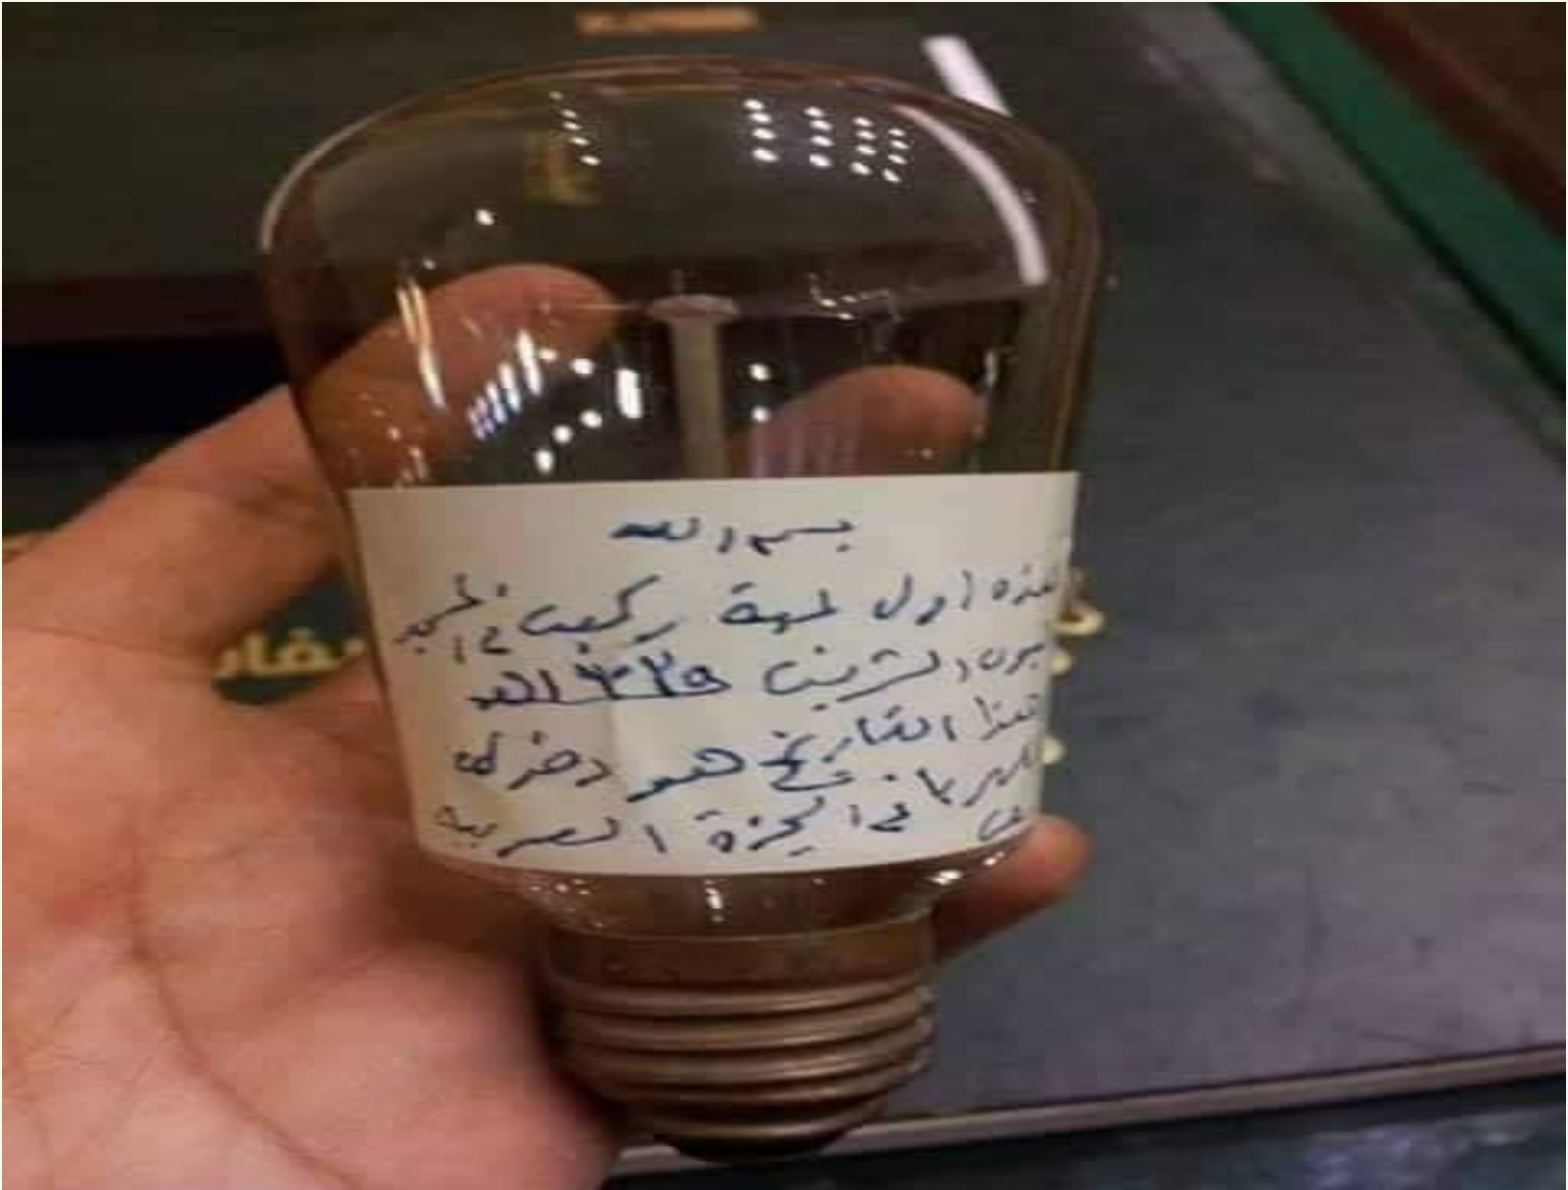 بسم الله
هذه اول لمبة ركبت في المسجد
النبوي الشريف ١٣٢٥ الله
هذا التاريخ هو دخول
الكهرباء في الجزة العربية